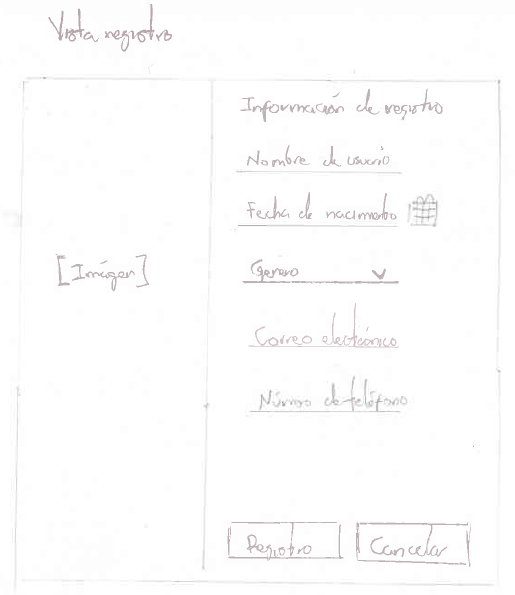 Vista registro
Información de registro
Nombre de usuario
Fecha de nacimiento
[Imágen]
Genero
Correo electrónico
Número de teléfono
Registro
Cancelar